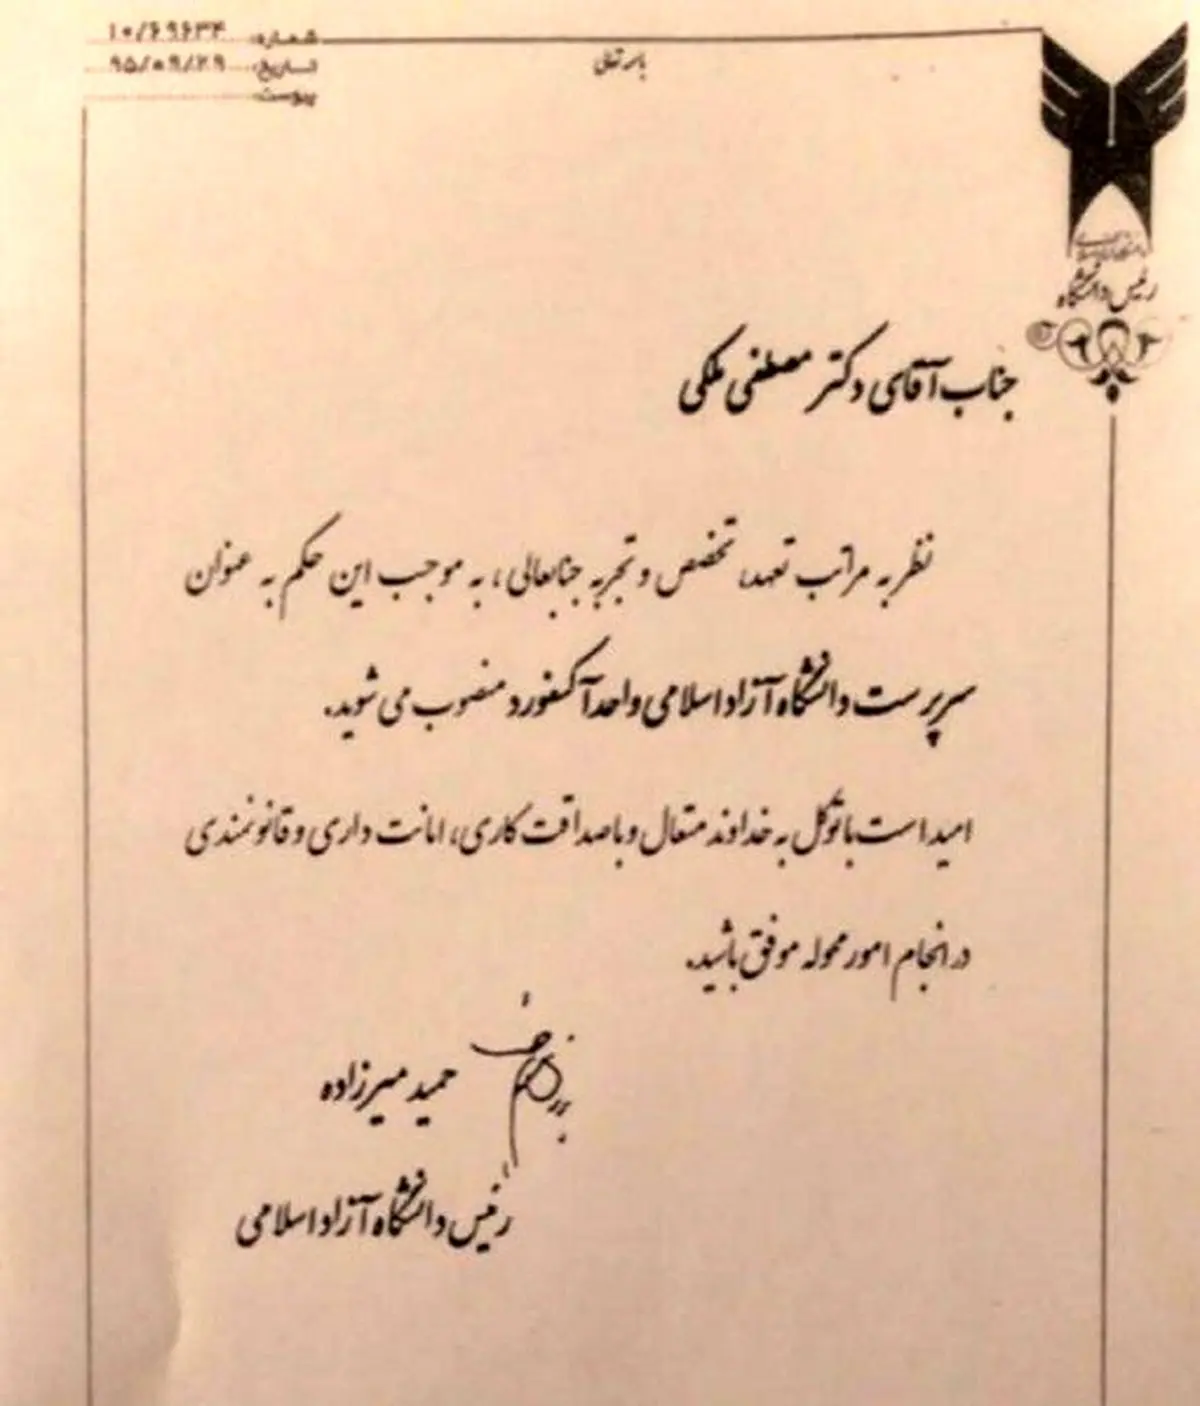 باسمه تعالی
شماره: ۱۰/۶۹۶۳۴
تاریخ: ۹۵/۰۹/۲۹
پیوست:
دانشگاه آزاد اسلامی
رئیس دانشگاه
جناب آقای دکتر مصطفی ملکی
نظر به مراتب تعهد، تخصص و تجربه جنابعالی، به موجب این حکم به عنوان
سرپرست دانشگاه آزاد اسلامی واحد آکسفورد منصوب می شوید.
امید است با توکل به خداوند متعال و با صداقت کاری، امانت داری و قانونمندی
در انجام امور محوله موفق باشید.
حمید میرزاده
رئیس دانشگاه آزاد اسلامی